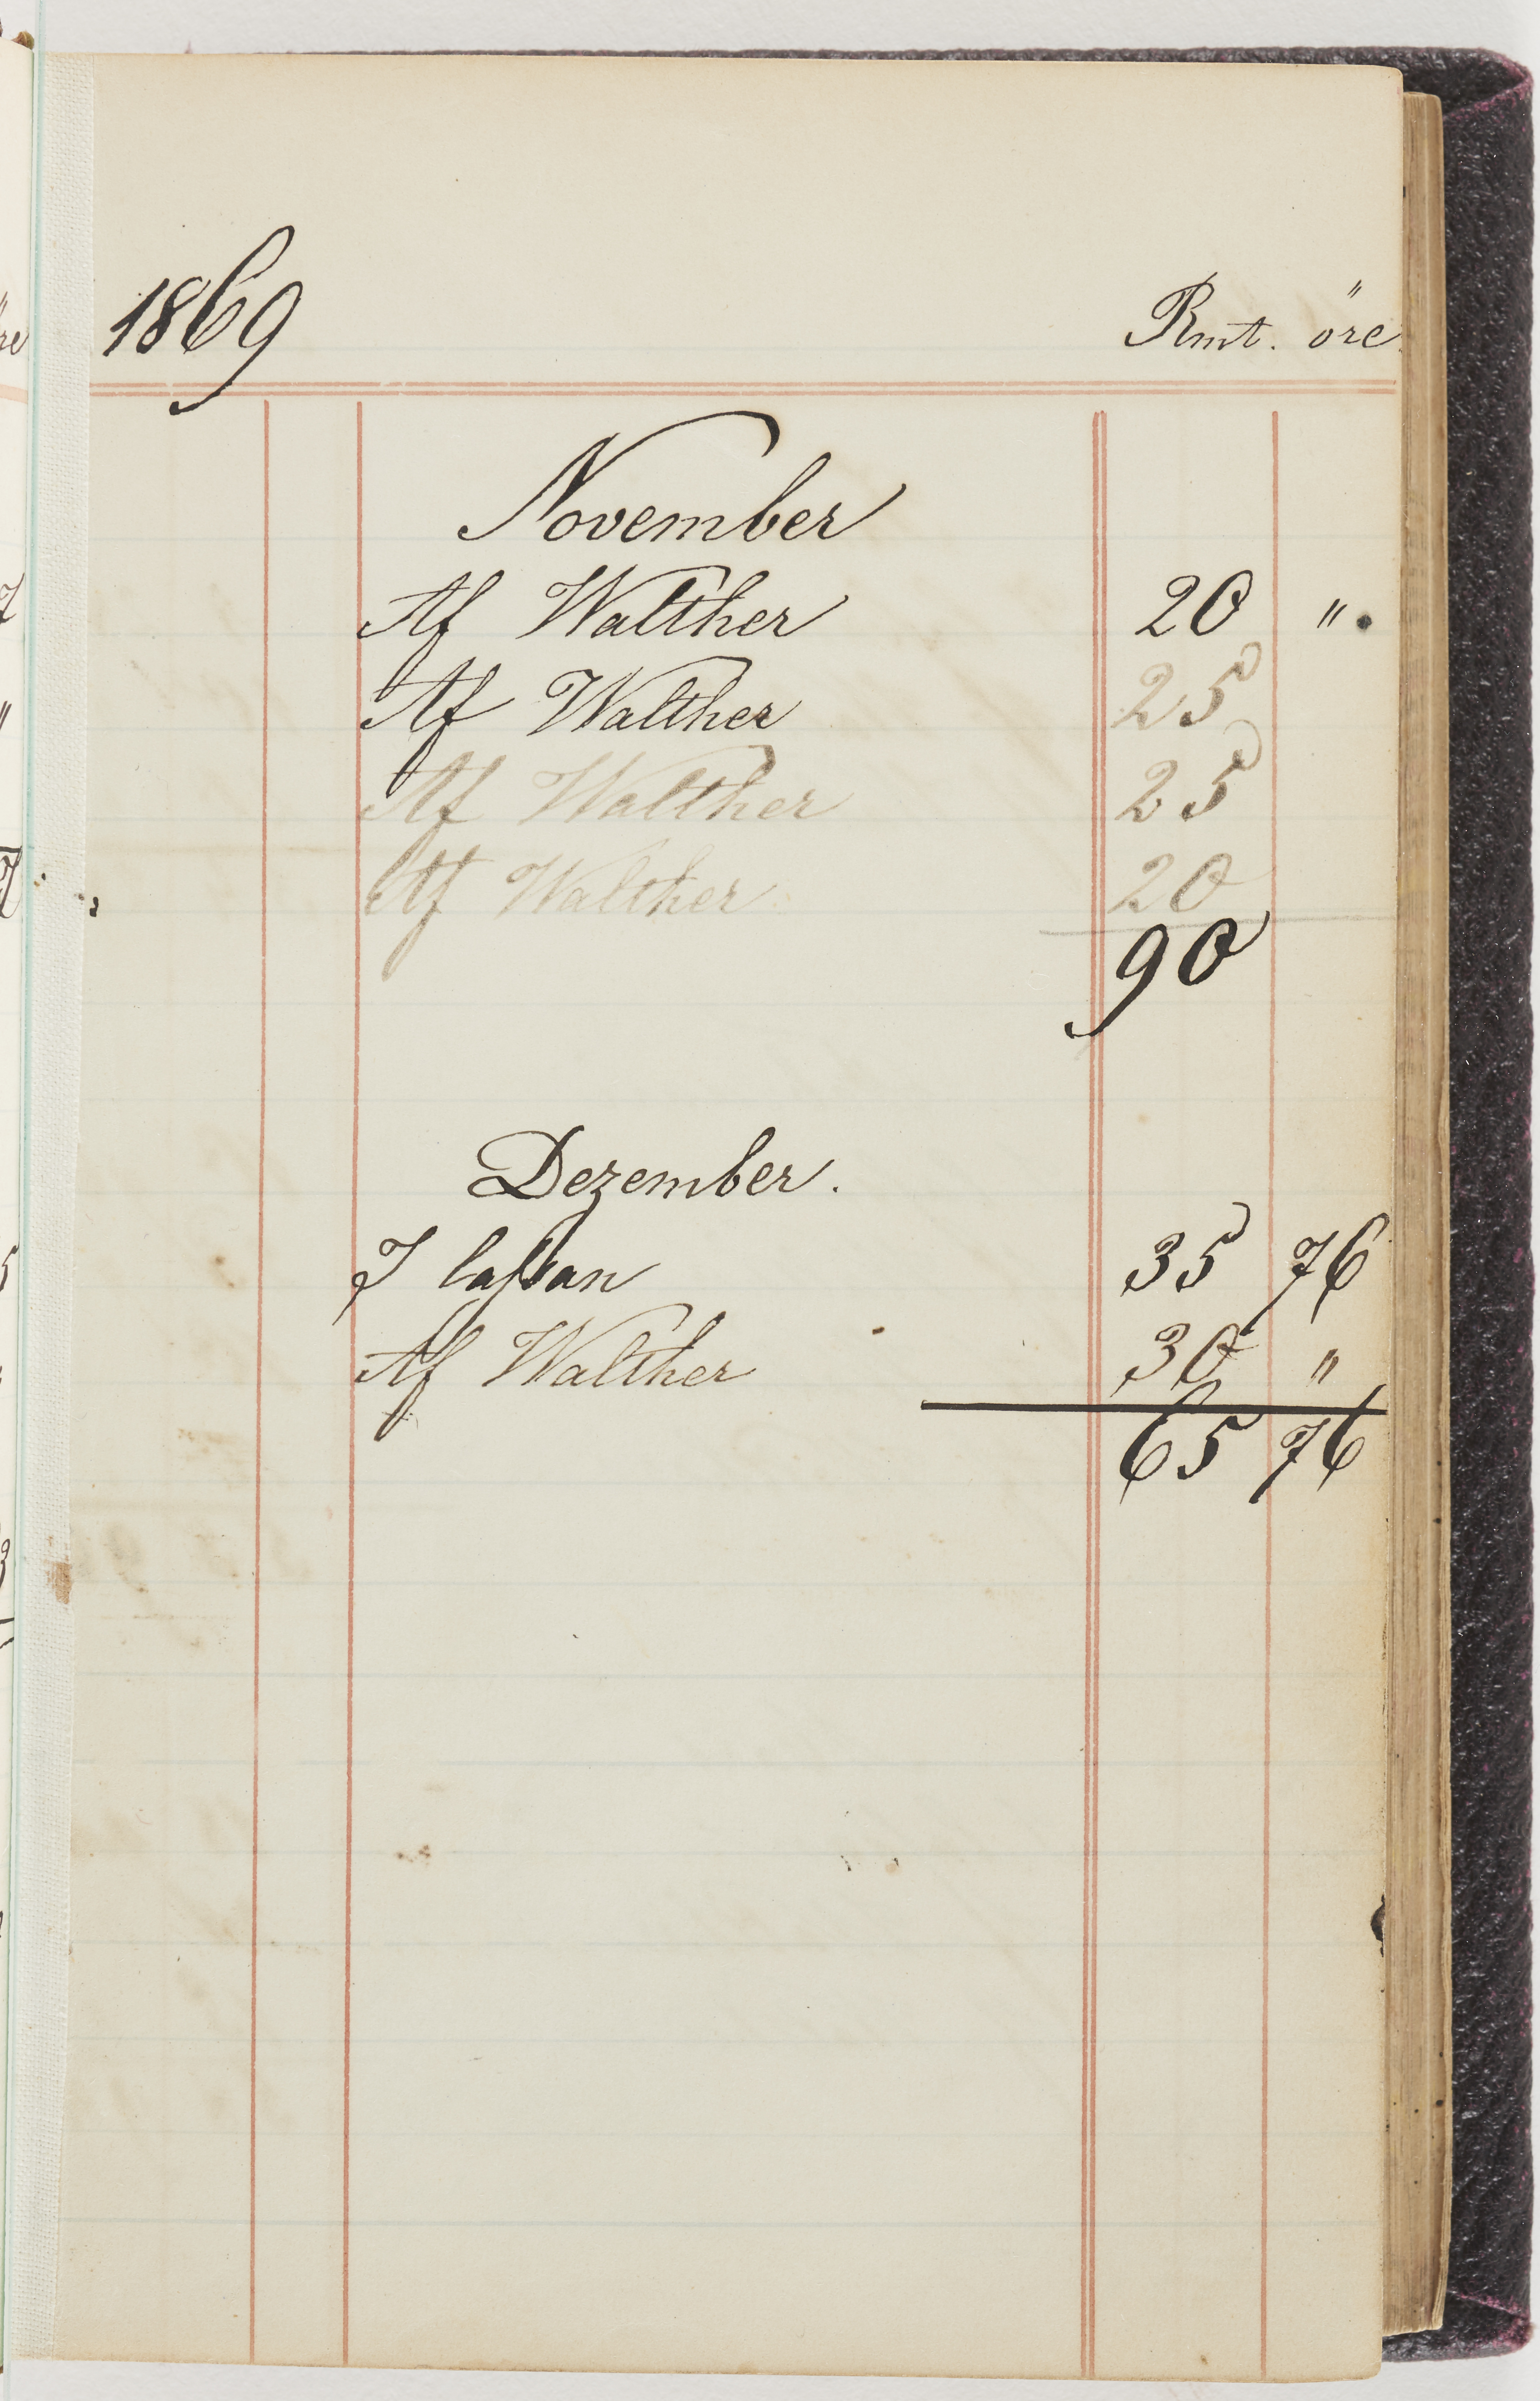 1869 Rmt. öre
November
Af Walther 20 "
Af Walther 25
Af Walther 25
Af Walther 20
90
Dezember.
I Cassan 35 76
Af Walther 30 "
65 76